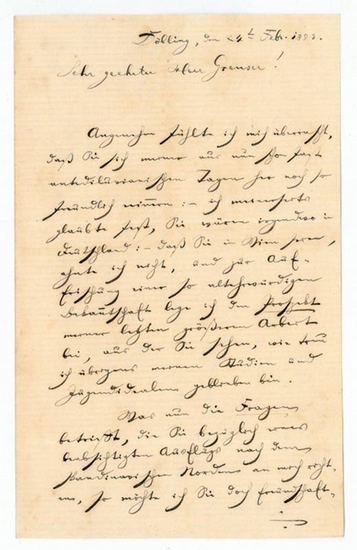 Döbling, den 24t Febr. 1893.
Sehr geehrter Herr Grenser!
Angenehm fühlte ich mich überrascht,
daß Sie sich meiner aus nun schon fast
antediluvianischen Tagen her noch so
freundlich erinnern – ich meinerseits
glaubte fest, Sie wären irgendwo in
Deutschland – daß Sie in Wien seien,
ahnte ich nicht, und zur Auf-
frischung einer so altehrwürdigen
Bekanntschaft lege ich den Prospekt
meiner letzten größeren Arbeit
bei, aus der Sie sehen, wie treu
ich übrigens meinen Studien und
Jugendidealen geblieben bin.
Was nun die Fragen
betrifft, die Sie bezüglich eines
beabsichtigten Ausflugs nach dem
skandinavischen Norden an mich richt-
en, so möchte ich Sie doch freundschaft-